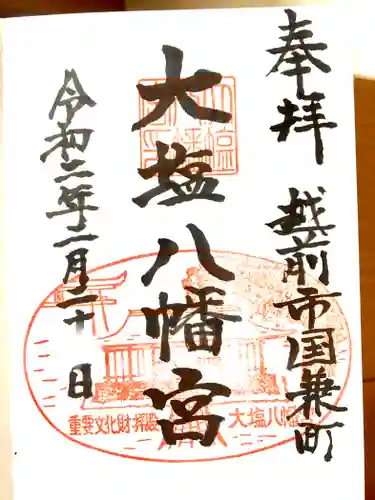 奉拝 越前市国兼町
大塩八幡宮
令和二年二月二十日
重要文化財拝殿 大塩八幡